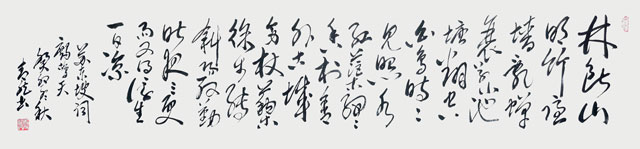 林断山
明竹隐
墙乱蝉
衰草小池
塘翻空
白鸟时时
见照水
红蕖细细
香村舍
外古城
旁杖藜
徐步转
斜阳殷勤
昨夜三更
雨又得浮生
一日凉
苏东坡词
鹧鸪天